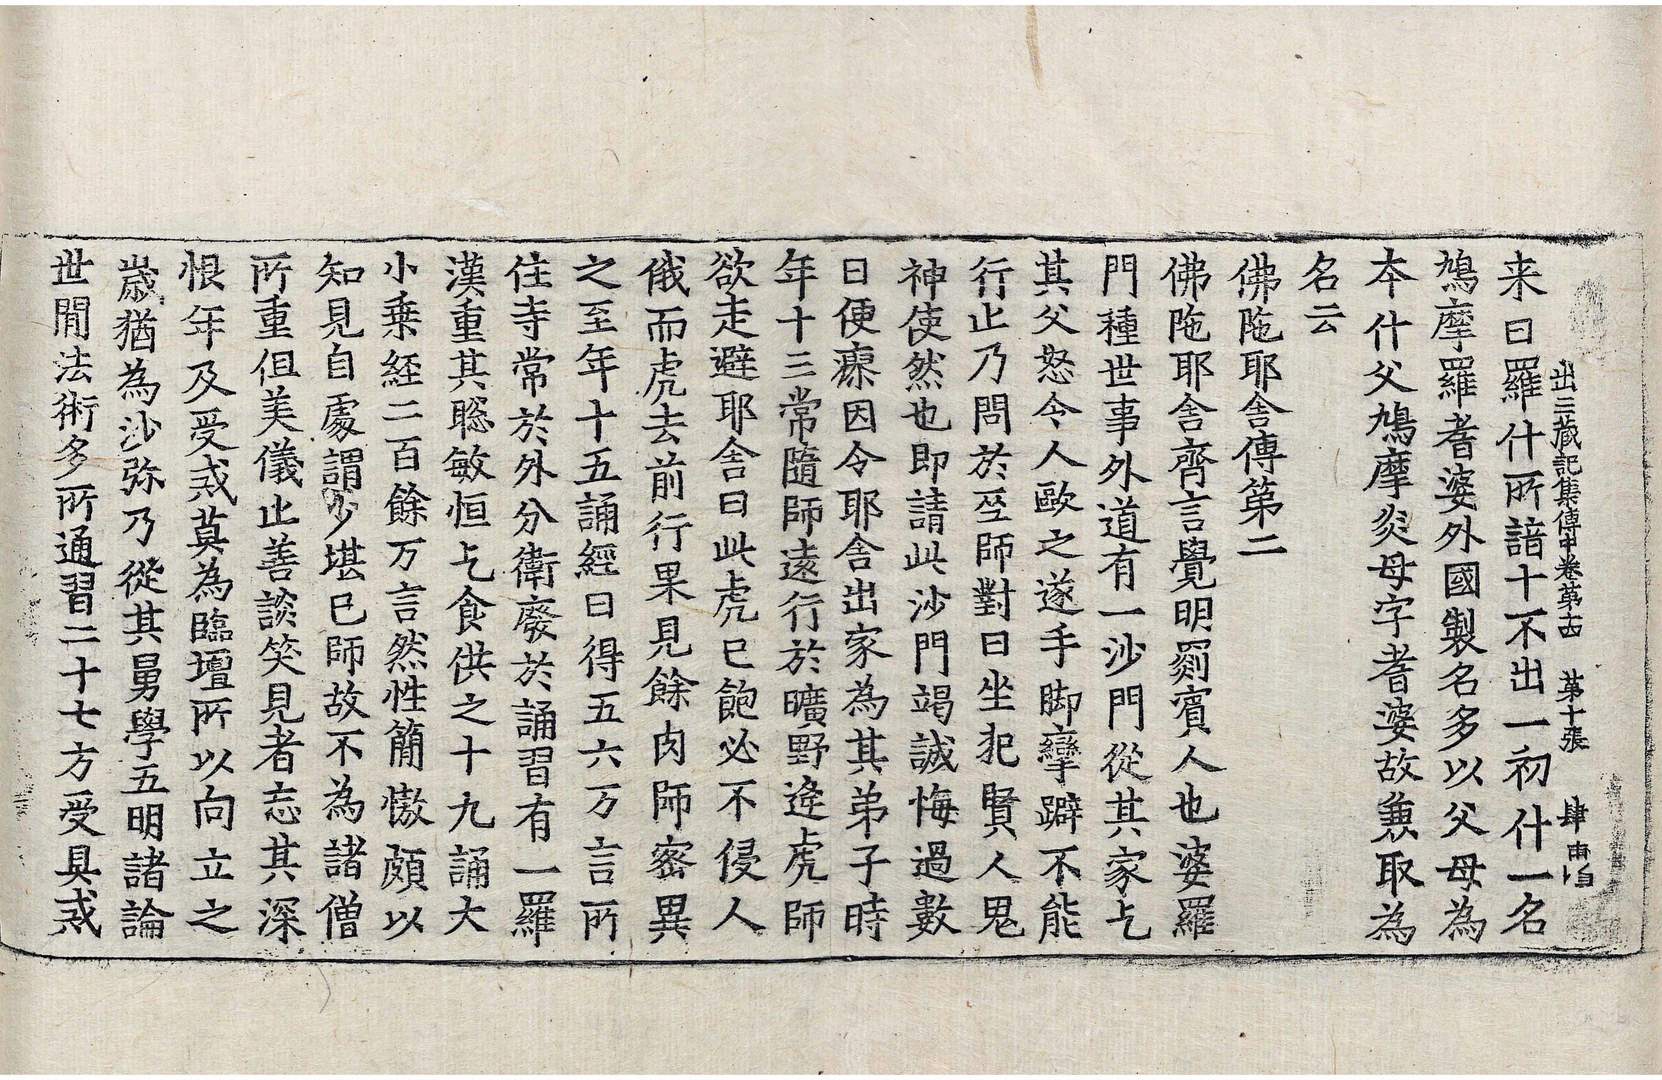 出三藏記集傳中卷第十四 第十張 肆
来曰羅什所諳十不出一初什一名
鳩摩羅耆婆外國製名多以父母為
本什父鳩摩炎母字耆婆故兼取為
名云
佛陁耶舍傳第二
佛陁耶舍齊言覺明罽賓人也婆羅
門種世事外道有一沙門從其家乞
其父怒令人歐之遂手脚攣躃不能
行止乃問於巫師對曰坐犯賢人鬼
神使然也即請此沙門竭誠悔過數
日便瘳因令耶舍出家為其弟子時
年十三常隨師遠行於曠野逢虎師
欲走避耶舍曰此虎已飽必不侵人
俄而虎去前行果見餘肉師密異
之至年十五誦經日得五六万言所
住寺常於外分衛廢於誦習有一羅
漢重其聡敏恒乞食供之十九誦大
小乗經二百餘万言然性簡慠頗以
知見自處謂少堪已師故不為諸僧
所重但美儀止善談笑見者忘其深
恨年及受戒莫為臨壇所以向立之
歳猶為沙弥乃從其舅學五明諸論
世間法術多所通習二十七方受具戒